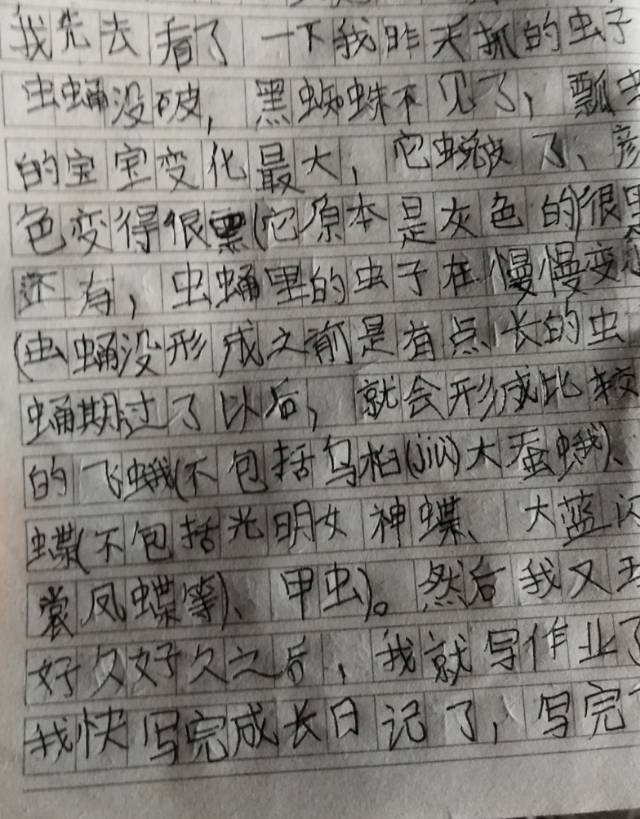 我先去看了一下我昨天抓的虫子
虫蛹没破，黑蜘蛛不见了，瓢虫
的宝宝变化最大，它蜕皮了、颜
色变得很黑(它原本是灰色的)很
还有，虫蛹里的虫子在慢慢变
(虫蛹没形成之前是有点长的虫
蛹期过了以后，就会形成比较
的飞蛾(不包括乌桕(jiù)大蚕蛾)、
蝶(不包括光明女神蝶、大蓝闪
裳凤蝶等)、甲虫)。然后我又玩
好久好久之后，我就写作业了
我快写完成长日记了，写完